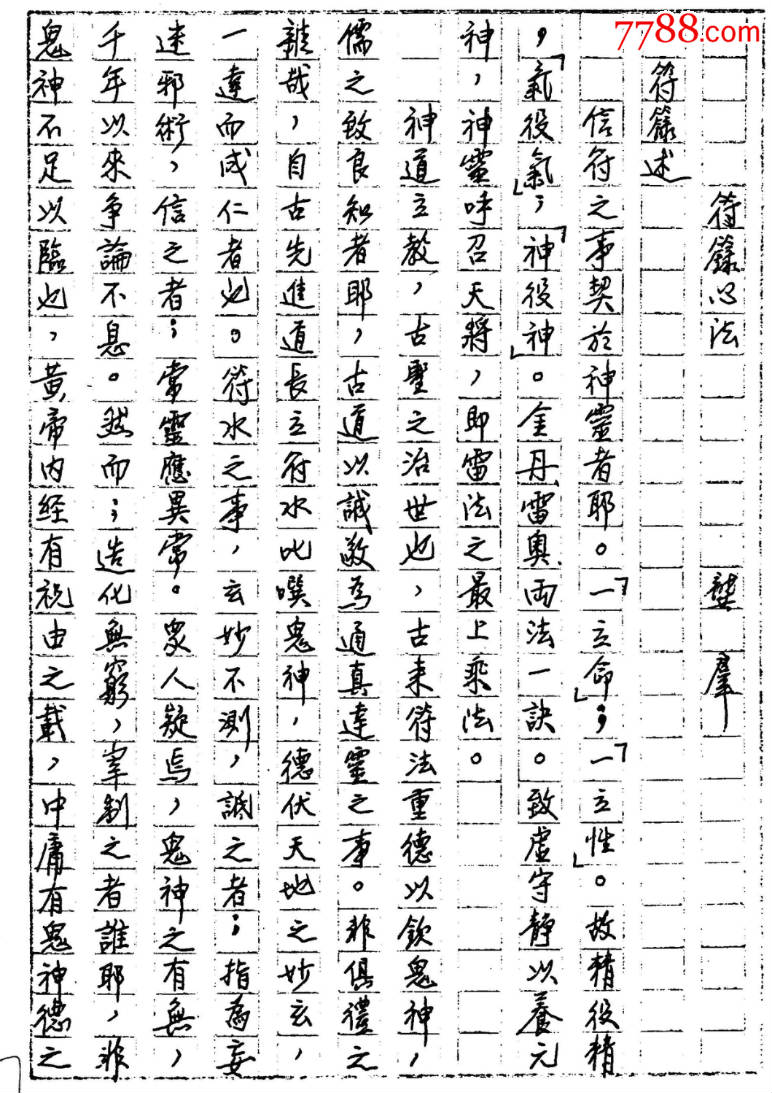 7788.com
符籙心法 龔羣
符籙述
信符之事契於神靈者耶。「一立命」;「一立性」。故精役精
,「氣役氣」;「神役神」。金丹雷奧兩法一訣。致虛守靜以養元
神,神靈呼召天將,即雷法之最上乘法。
神道立教,古聖之治世也,古来符法重德以欽鬼神,
儒之致良知者耶,古道以誠敬為通真達靈之事。非俱禮之
難哉,自古先進道長立符水叱噀鬼神,德伏天地之妙玄,
一達而成仁者也。符水之事,玄妙不測,詆之者;指為妄
迷邪術,信之者;常靈應異常。眾人疑焉,鬼神之有無,
千年以來争論不息。然而;造化無窮,宰制之者誰耶,非
鬼神不足以臨也,黄帝内经有祝由之載,中庸有鬼神德之